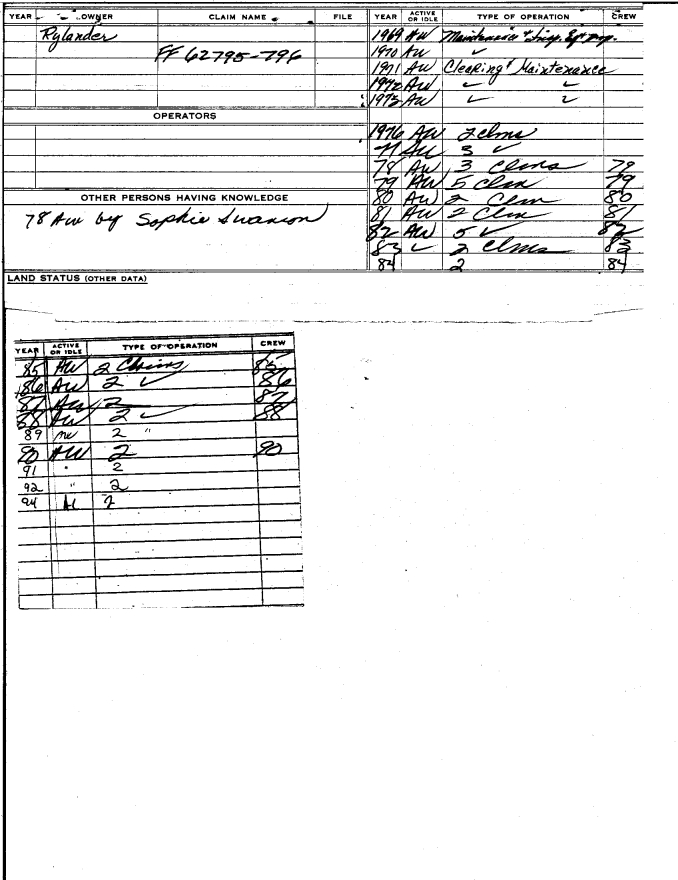 YEAR OWNER CLAIM NAME FILE
Rylander
FF 62795-796
OPERATORS
OTHER PERSONS HAVING KNOWLEDGE
78 AW by Sophie Swanson
YEAR ACTIVE OR IDLE TYPE OF OPERATION CREW
1969 AW Maintenance &
1970 AW ✓
1971 AW Clearing & Maintenance
1972 AW ✓ ✓
1973 AW ✓ ✓
1976 AW 2 clms
77 AW 3 ✓
78 AW 3 Clms 79
79 AW 5 Clm 79
80 AW 2 Clm 80
81 AW 2 Clm 81
82 AW 5 ✓ 82
83 ✓ 2 Clms 83
84 2 84
LAND STATUS (OTHER DATA)
YEAR ACTIVE OR IDLE TYPE OF OPERATION CREW
85 AW 2 Claims 85
86 AW 2 ✓ 86
87 AW 2 87
88 AW 2 ✓ 88
89 2 "
90 AW 2 90
91 " 2
92 " 2
94 2